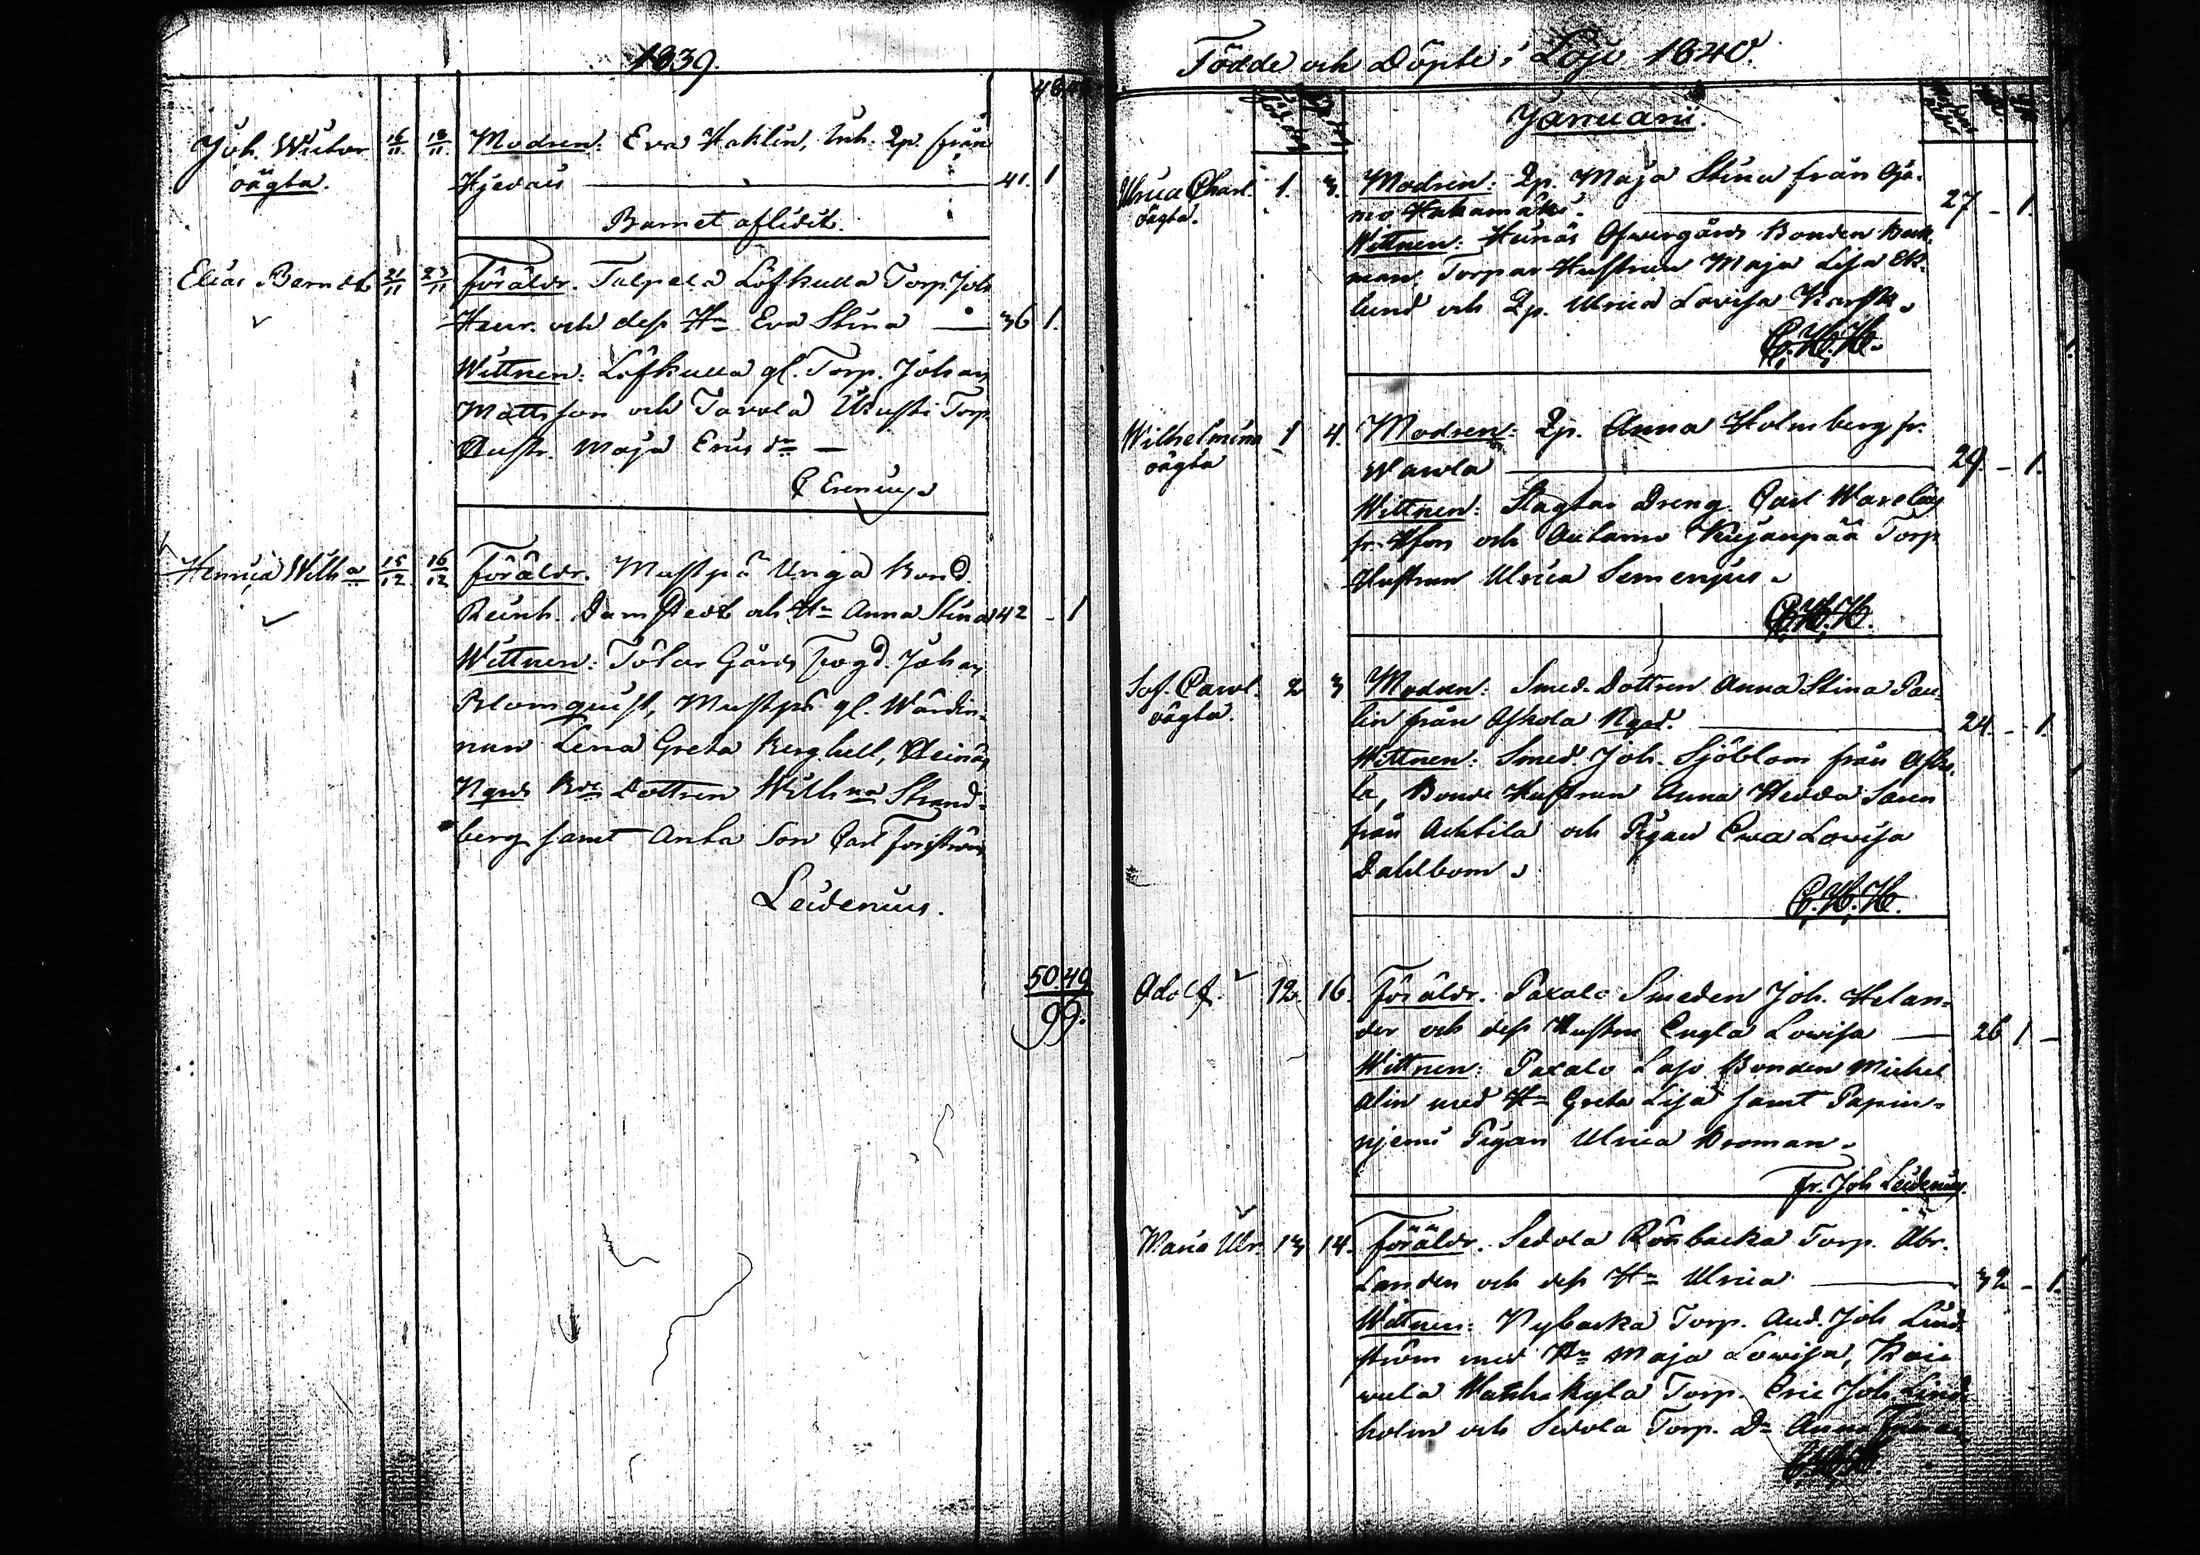 1839.
48.48
Joh. Wictor 16/11 18/11 Modren: Eva Haklin, Inh. Qp. från
oägta. Hjedais — 41. 1
Barnet aflidit.
Elias Berndt 21/11 23/11 föräldr. Talpela Löfkulla Torp. Joh.
Henr. och dess Hu Eva Stina — 36 1.
Wittnen: Löfkulla gl. Torp. Johan
Mattsson och Tavola Torp.
Hustr. Maja Ericsdr —
C Erenius
Henrica Wilhna 15/12 16/12 föräldr. Mustpä Uniga Bond.
Reinh. Damstedt och Hu Anna Stina 42 - 1
Wittnen: Tötar Gårds Fogd. Johan
Blomquist, Mustpä gl. Wärdin-
nan Lena Greta Berghell, Heinäs
Ngrds Bde Dottren Wilhna Strand-
berg samt Anta Son Carl Forsström
Leidenius.
50.49
99.
Födde och Döpte i Lojo 1840.
Januarii.
Ulrica Charl. 1. 3. Modren: Qp. Maja Stina från Oja-
oägta. mo Hakamäki. — 27 - 1.
Wittnen: Hunäs Ofvergårds Bonden Beck-
man, Torpar Hustrun Maja Lisa Ek-
lund och Qp. Ulrica Lovisa Karsk.
C. H. H.
Wilhelmina 1 4. Modren: Qp. Anna Holmberg fr.
oägta Warola — 29. - 1.
Wittnen: Dreng Carl Warelius
fr. och Outamo Kujanpää Torp.
Hustrun Ulrica Semenjus.
C. H. H.
Sof. Carol. 2 3 Modren: Smed. Dottren Anna Stina Pau-
oägta. lin från Oskola Ngrd. — 24. - 1.
Wittnen: Smed. Joh. Sjöblom från Osko-
la, Bonde Hustrun Anna Hedda Saren
från Achtila och Pigan Ewa Lovisa
Dahlbom.
C. H. H.
Adolf. 12. 16. föräldr. Paxalo Smeden Joh. Helan-
der och dess Hustru Engla Lowisa — 26 1 -
Wittnen: Paxalo Laso Bonden Michel
Alin med Hu Greta Lisa samt Papin-
njemi Pigan Ulrica Broman.
Fr. Joh. Leidenius.
Maria Ulr. 13 14. föräldr. Sedola Rönbacka Torp. Abr.
Landen och dess Hu Ulrica — 32 - 1.
Wittnen: Nybacka Torp. And. Joh Lind-
ström med Hu Maja Lowisa, Koi-
wula Wanhakyla Torp. Eric Joh Lind-
holm och Sedola Torp. Dr Anna
C. H. H.